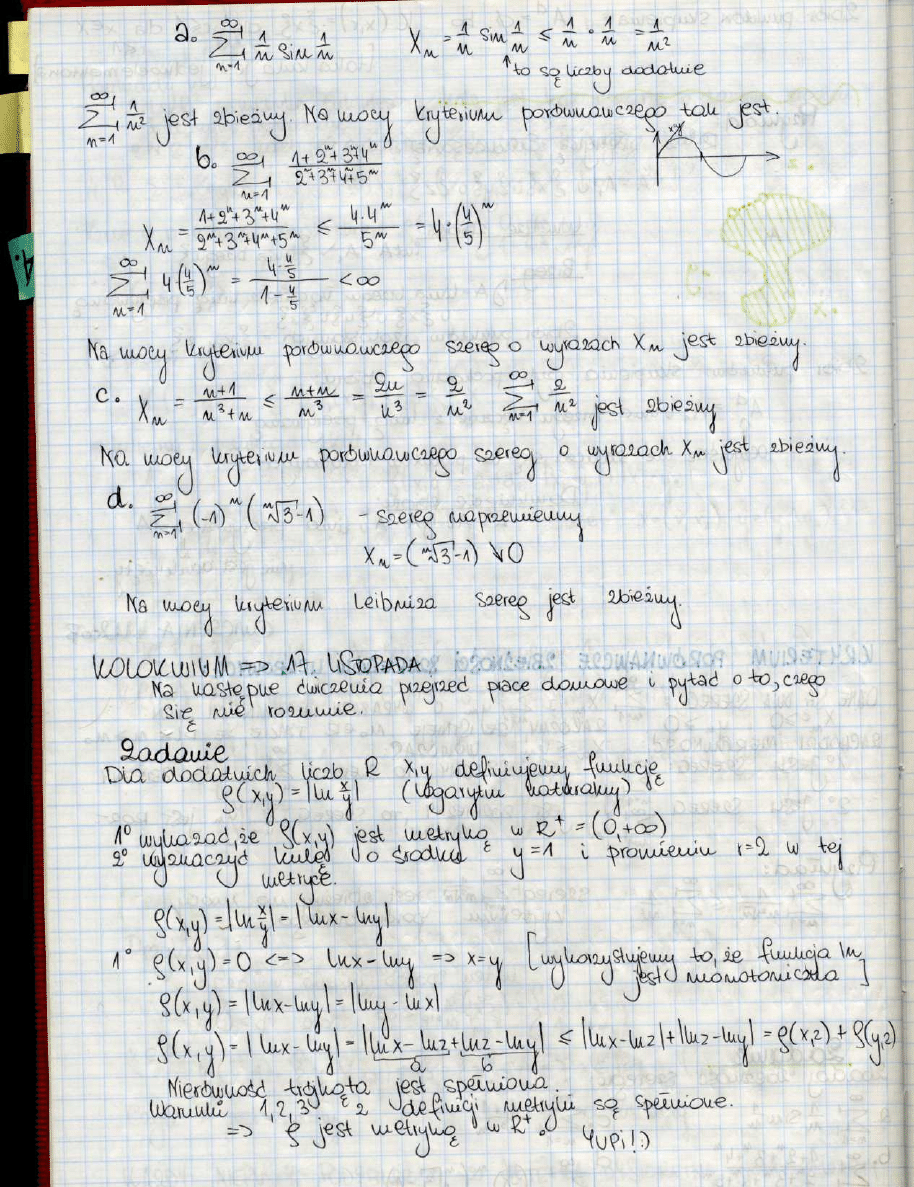 a. ∞∑n=1 1/n sin 1/n   Xn = 1/n sin 1/n ≤ 1/n · 1/n = 1/n²
↑to są liczby dodatnie
∞∑n=1 1/n² jest zbieżny. Na mocy kryterium porównawczego tak jest.
b. ∞∑n=1 (1+2ⁿ+3ⁿ+4ⁿ)/(2ⁿ+3ⁿ+4ⁿ+5ⁿ)
Xn = (1+2ⁿ+3ⁿ+4ⁿ)/(2ⁿ+3ⁿ+4ⁿ+5ⁿ) ≤ (4·4ⁿ)/5ⁿ = 4·(4/5)ⁿ
∞∑n=1 4(4/5)ⁿ = (4·4/5)/(1-4/5) < ∞
Na mocy kryterium porównawczego szereg o wyrazach Xn jest zbieżny.
c. Xn = (n+1)/(n³+n) ≤ (n+n)/n³ = 2n/n³ = 2/n²   ∞∑n=1 2/n² jest zbieżny
Na mocy kryterium porównawczego szereg o wyrazach Xn jest zbieżny.
d. ∞∑n=1 (-1)ⁿ (ⁿ√3-1) - szereg naprzemienny
Xn = (ⁿ√3-1) ↘0
Na mocy kryterium Leibniza szereg jest zbieżny.
KOLOKWIUM => 17. LISTOPADA
Na następne ćwiczenia przejrzeć prace domowe i pytać o to, czego
się nie rozumie.
Zadanie
Dla dodatnich liczb R x,y definiujemy funkcję
ρ(x,y) = |ln x/y| (logarytm naturalny)
1° wykazać, że ρ(x,y) jest metryką w R⁺ = (0,+∞)
2° wyznaczyć kulę o środku y=1 i promieniu r=2 w tej
metryce.
ρ(x,y) = |ln x/y| = |lnx - lny|
1° ρ(x,y)=0 <=> lnx - lny => x=y [wykorzystujemy to, że funkcja ln
jest monotoniczna]
ρ(x,y) = |lnx-lny| = |lny-lnx|
ρ(x,y) = |lnx-lny| = |lnx-lnz+lnz-lny| ≤ |lnx-lnz|+|lnz-lny| = ρ(x,z) + ρ(y,z)
a b
Nierówność trójkąta jest spełniona.
Warunki 1,2,3 z definicji metryki są spełnione.
=> ρ jest metryką w R⁺. Yupi!:)